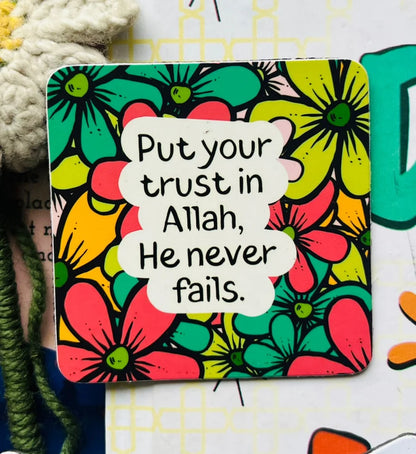 Put your
trust in
Allah,
He never
fails.